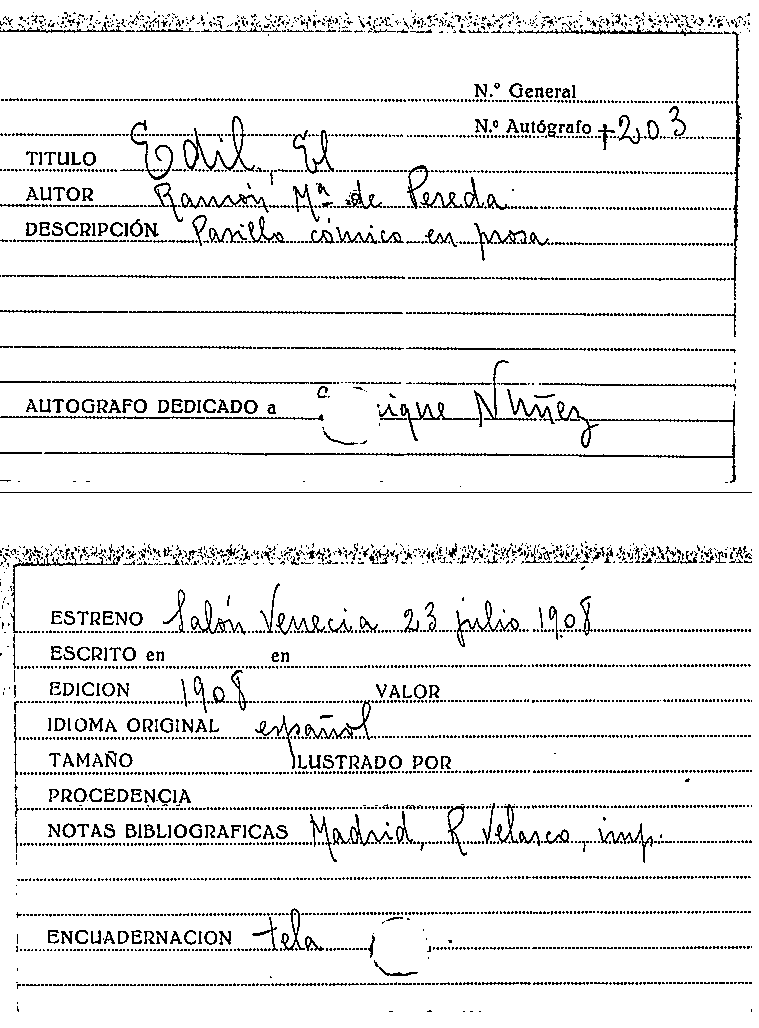 N.º General
N.º Autógrafo +203
TITULO Edil, El
AUTOR Ramón Mª de Pereda
DESCRIPCIÓN Pasillo cómico en prosa
AUTOGRAFO DEDICADO a ique Nuñez
ESTRENO Salón Venecia 23 julio 1908
ESCRITO en en
EDICION 1908 VALOR
IDIOMA ORIGINAL español
TAMAÑO ILUSTRADO POR
PROCEDENCIA
NOTAS BIBLIOGRAFICAS Madrid, R Velasco, imp.
ENCUADERNACION tela